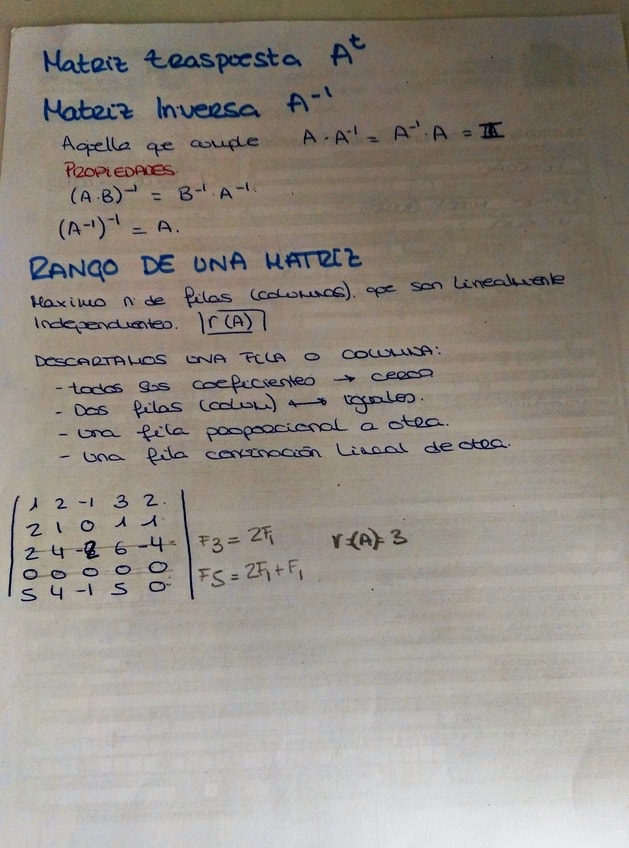 Matriz traspuesta Aᵗ
Matriz Inversa A⁻¹
Aquella que cumple A · A⁻¹ = A⁻¹ · A = I
PROPIEDADES.
(A·B)⁻¹ = B⁻¹ · A⁻¹.
(A⁻¹)⁻¹ = A.
RANGO DE UNA MATRIZ
Maximo nº de filas (columnas). que son linealmente
Independientes. r(A)
DESCARTAMOS UNA FILA O COLUMNA:
- todos sus coeficientes → ceros
- Dos filas (colum) ↔ iguales.
- una fila proporcional a otra.
- una fila convinación lineal de otra.
1 2 -1 3 2.
2 1 0 1 1
2 4 -2 6 -4 F3 = 2F₁ r(A)= 3
0 0 0 0 0
5 4 -1 5 0 F5 = 2F₁ + F₁